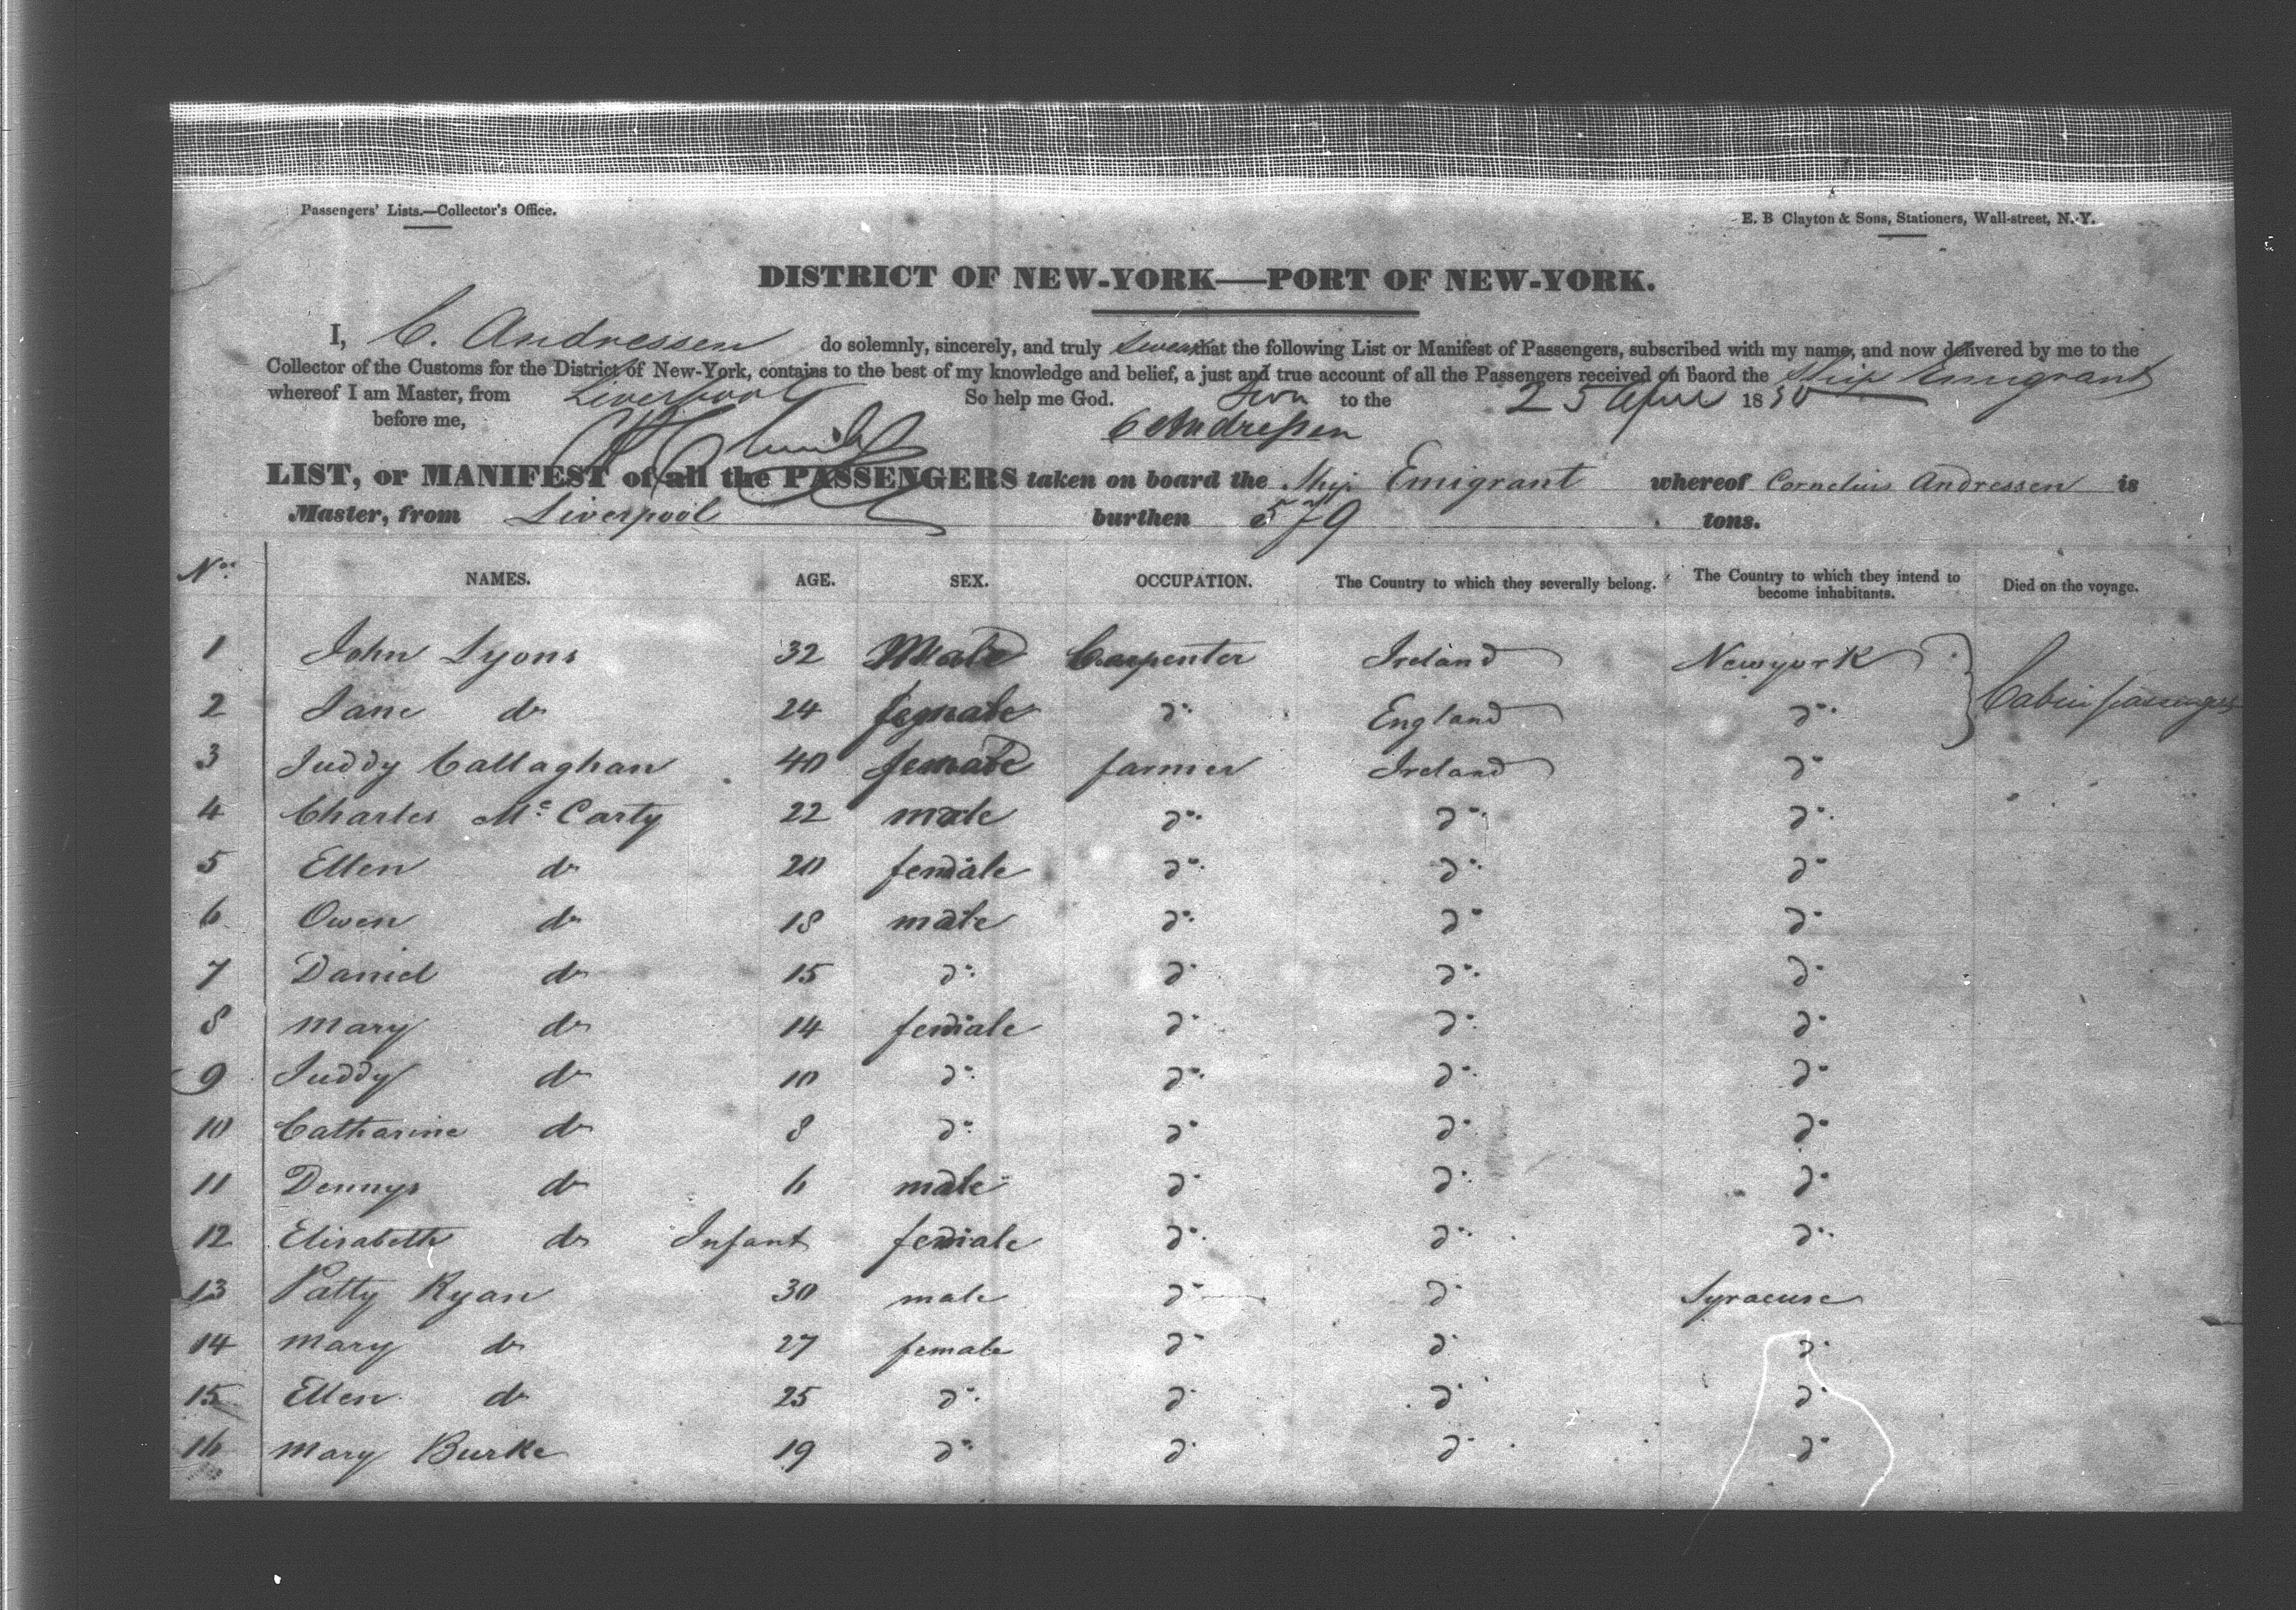 Passengers' Lists.—Collector's Office.
E. B Clayton & Sons, Stationers, Wall-street, N. Y.
DISTRICT OF NEW-YORK—PORT OF NEW-YORK.
I, C. Andressen do solemnly, sincerely, and truly swear that the following List or Manifest of Passengers, subscribed with my name, and now delivered by me to the
Collector of the Customs for the District of New-York, contains to the best of my knowledge and belief, a just and true account of all the Passengers received on baord the Ship Emigrant
whereof I am Master, from Liverpool So help me God. to the 25 April 1850
before me, C Andressen
LIST, or MANIFEST of all the PASSENGERS taken on board the Ship Emigrant whereof Cornelius Andressen is
Master, from Liverpool burthen tons.
Nos NAMES. AGE. SEX. OCCUPATION. The Country to which they severally belong. The Country to which they intend to become inhabitants. Died on the voyage.
1 John Lyons 32 Male Carpenter Ireland Newyork Cabin passengers
2 Jane do 24 female do England do
3 Juddy Callaghan 40 female farmer Ireland do
4 Charles Mc Carty 22 male do do do
5 Ellen do 20 female do do do
6 Owen do 18 male do do do
7 Daniel do 15 do do do do
8 Mary do 14 female do do do
9 Juddy do 10 do do do do
10 Catharine do 8 do do do do
11 Dennys do 6 male do do do
12 Elisabeth do Infant female do do do
13 Patty Ryan 30 male do do Syracuse
14 Mary do 27 female do do do
15 Ellen do 25 do do do do
16 Mary Burke 19 do do do do